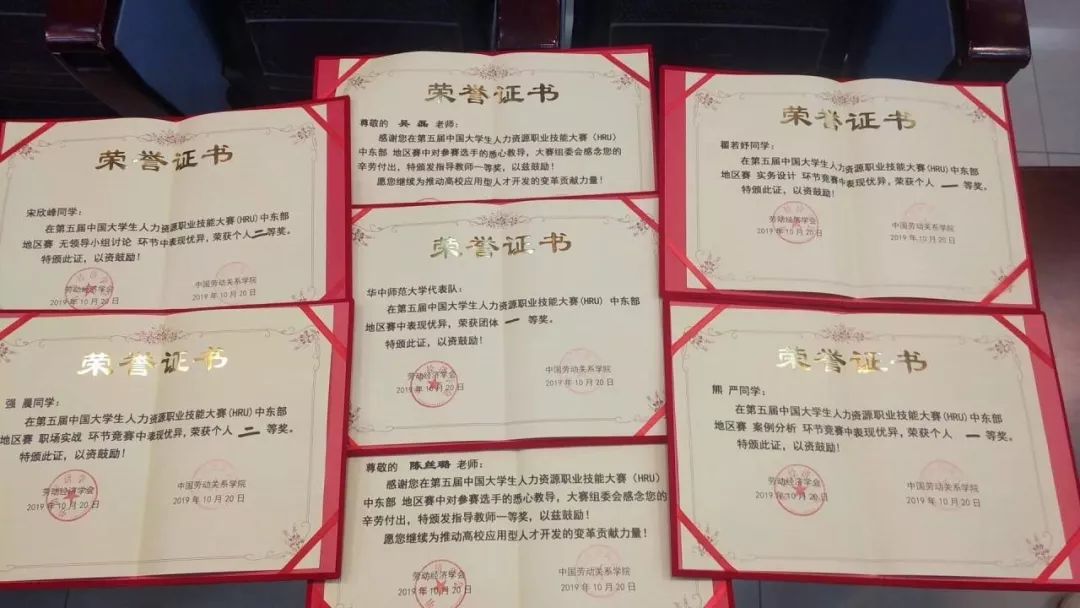 荣誉证书
宋欣峰同学：
在第五届中国大学生人力资源职业技能大赛(HRU)中东部
地区赛 无领导小组讨论 环节中表现优异，荣获个人 二 等奖。
特颁此证，以资鼓励！
劳动经济学会
2019年10月20日
中国劳动关系学院
2019年10月20日
荣誉证书
尊敬的 吴磊 老师：
感谢您在第五届中国大学生人力资源职业技能大赛(HRU)
中东部 地区赛中对参赛选手的悉心教导，大赛组委会感念您的
辛劳付出，特颁发指导教师一等奖，以兹鼓励！
愿您继续为推动高校应用型人才开发的变革贡献力量！
荣誉证书
瞿若妤同学：
在第五届中国大学生人力资源职业技能大赛(HRU)中东部
地区赛 实务设计 环节竞赛中表现优异，荣获个人 一 等奖。
特颁此证，以资鼓励！
劳动经济学会
2019年10月20日
中国劳动关系学院
2019年10月20日
荣誉证书
华中师范大学代表队：
在第五届中国大学生人力资源职业技能大赛(HRU) 中东部
地区赛中表现优异，荣获团体 一 等奖。
特颁此证，以资鼓励！
劳动经济学会
2019年10月20日
中国劳动关系学院
2019年10月20日
荣誉证书
强 晨同学：
在第五届中国大学生人力资源职业技能大赛(HRU)中东部
地区赛 职场实战 环节竞赛中表现优异，荣获个人 二 等奖。
特颁此证，以资鼓励！
劳动经济学会
2019年10月20日
中国劳动关系学院
2019年10月20日
荣誉证书
熊 严同学：
在第五届中国大学生人力资源职业技能大赛(HRU)中东部
地区赛 案例分析 环节竞赛中表现优异，荣获个人 一 等奖。
特颁此证，以资鼓励！
劳动经济学会
2019年10月20日
中国劳动关系学院
2019年10月20日
尊敬的 陈丝璐 老师：
感谢您在第五届中国大学生人力资源职业技能大赛(HRU)
中东部 地区赛中对参赛选手的悉心教导，大赛组委会感念您的
辛劳付出，特颁发指导教师一等奖，以兹鼓励！
愿您继续为推动高校应用型人才开发的变革贡献力量！
劳动经济学会
2019年10月20日
中国劳动关系学院
2019年10月20日